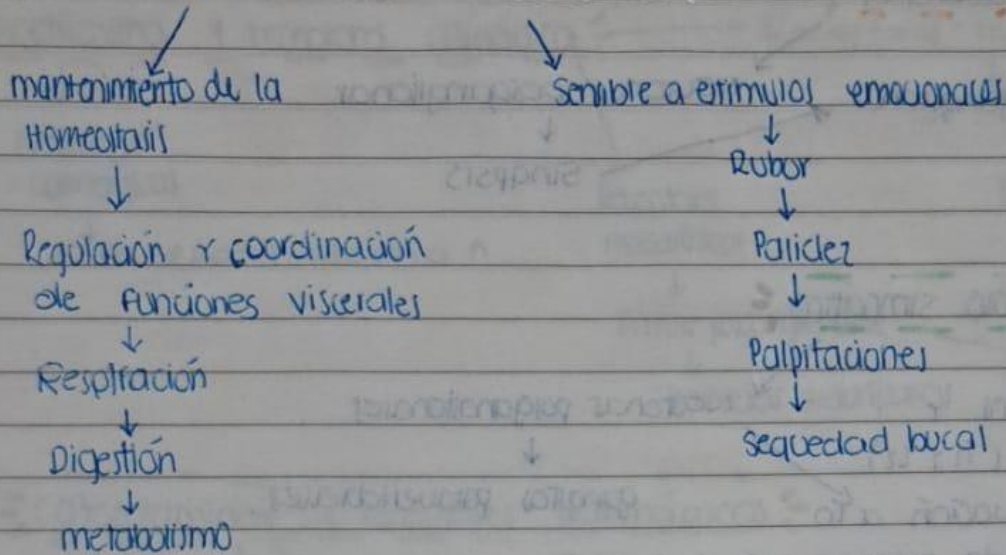 mantenimiento de la
Homeostasis
Regulación y coordinación
de funciones viscerales
Respiración
Digestión
metabolismo
Sensible a estimulos emocionales
Rubor
Palidez
Palpitaciones
sequedad bucal